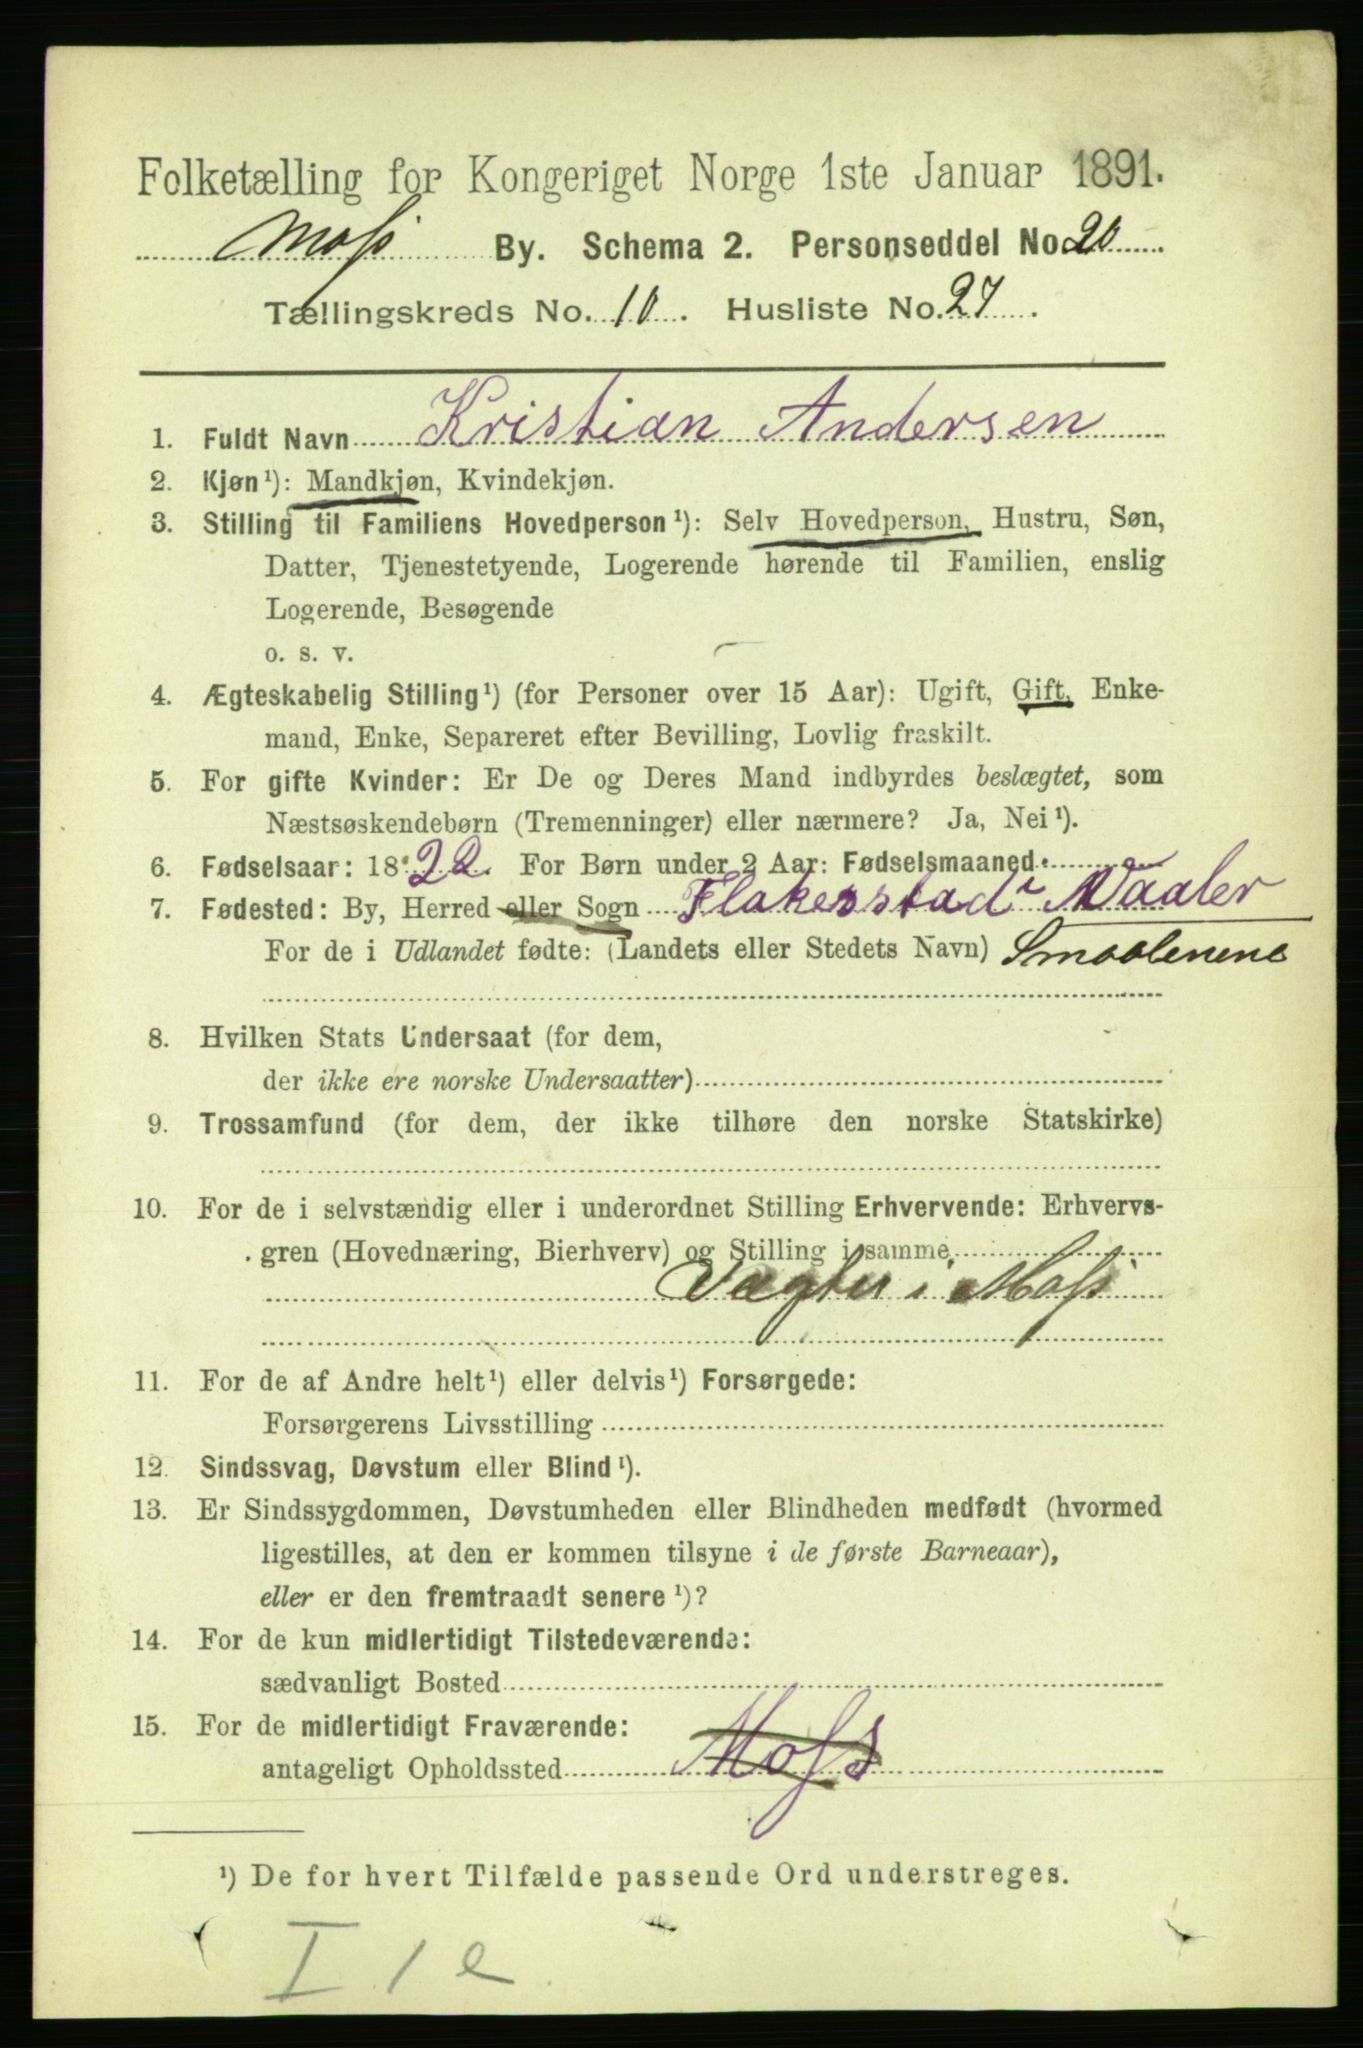 Folketælling for Kongeriget Norge 1ste Januar 1891.
Moss By. Schema 2. Personseddel No. 20
Tællingskreds No. 10. Husliste No. 27.
1. Fuldt Navn Kristian Andersen
2. Kjøn¹): Mandkjøn, Kvindekjøn.
3. Stilling til Familiens Hovedperson¹): Selv Hovedperson, Hustru, Søn,
Datter, Tjenestetyende, Logerende hørende til Familien, enslig
Logerende, Besøgende
o. s. v.
4. Ægteskabelig Stilling¹) (for Personer over 15 Aar): Ugift, Gift, Enke-
mand, Enke, Separeret efter Bevilling, Lovlig fraskilt.
5. For gifte Kvinder: Er De og Deres Mand indbyrdes beslægtet, som
Næstsøskendebørn (Tremenninger) eller nærmere? Ja, Nei¹).
6. Fødselsaar: 1822. For Børn under 2 Aar: Fødselsmaaned
7. Fødested: By, Herred eller Sogn Flakesstad Vaaler
For de i Udlandet fødte: (Landets eller Stedets Navn) Smaalenene
8. Hvilken Stats Undersaat (for dem,
der ikke ere norske Undersaatter)
9. Trossamfund (for dem, der ikke tilhøre den norske Statskirke)
10. For de i selvstændig eller i underordnet Stilling Erhvervende: Erhvervs-
gren (Hovednæring, Bierhverv) og Stilling i samme
Vægter i Moss
11. For de af Andre helt¹) eller delvis¹) Forsørgede:
Forsørgerens Livsstilling
12. Sindssvag, Døvstum eller Blind¹).
13. Er Sindssygdommen, Døvstumheden eller Blindheden medfødt (hvormed
ligestilles, at den er kommen tilsyne i de første Barneaar),
eller er den fremtraadt senere¹)?
14. For de kun midlertidigt Tilstedeværende:
sædvanligt Bosted
15. For de midlertidigt Fraværende:
antageligt Opholdssted Moss
¹) De for hvert Tilfælde passende Ord understreges.
I 1 e